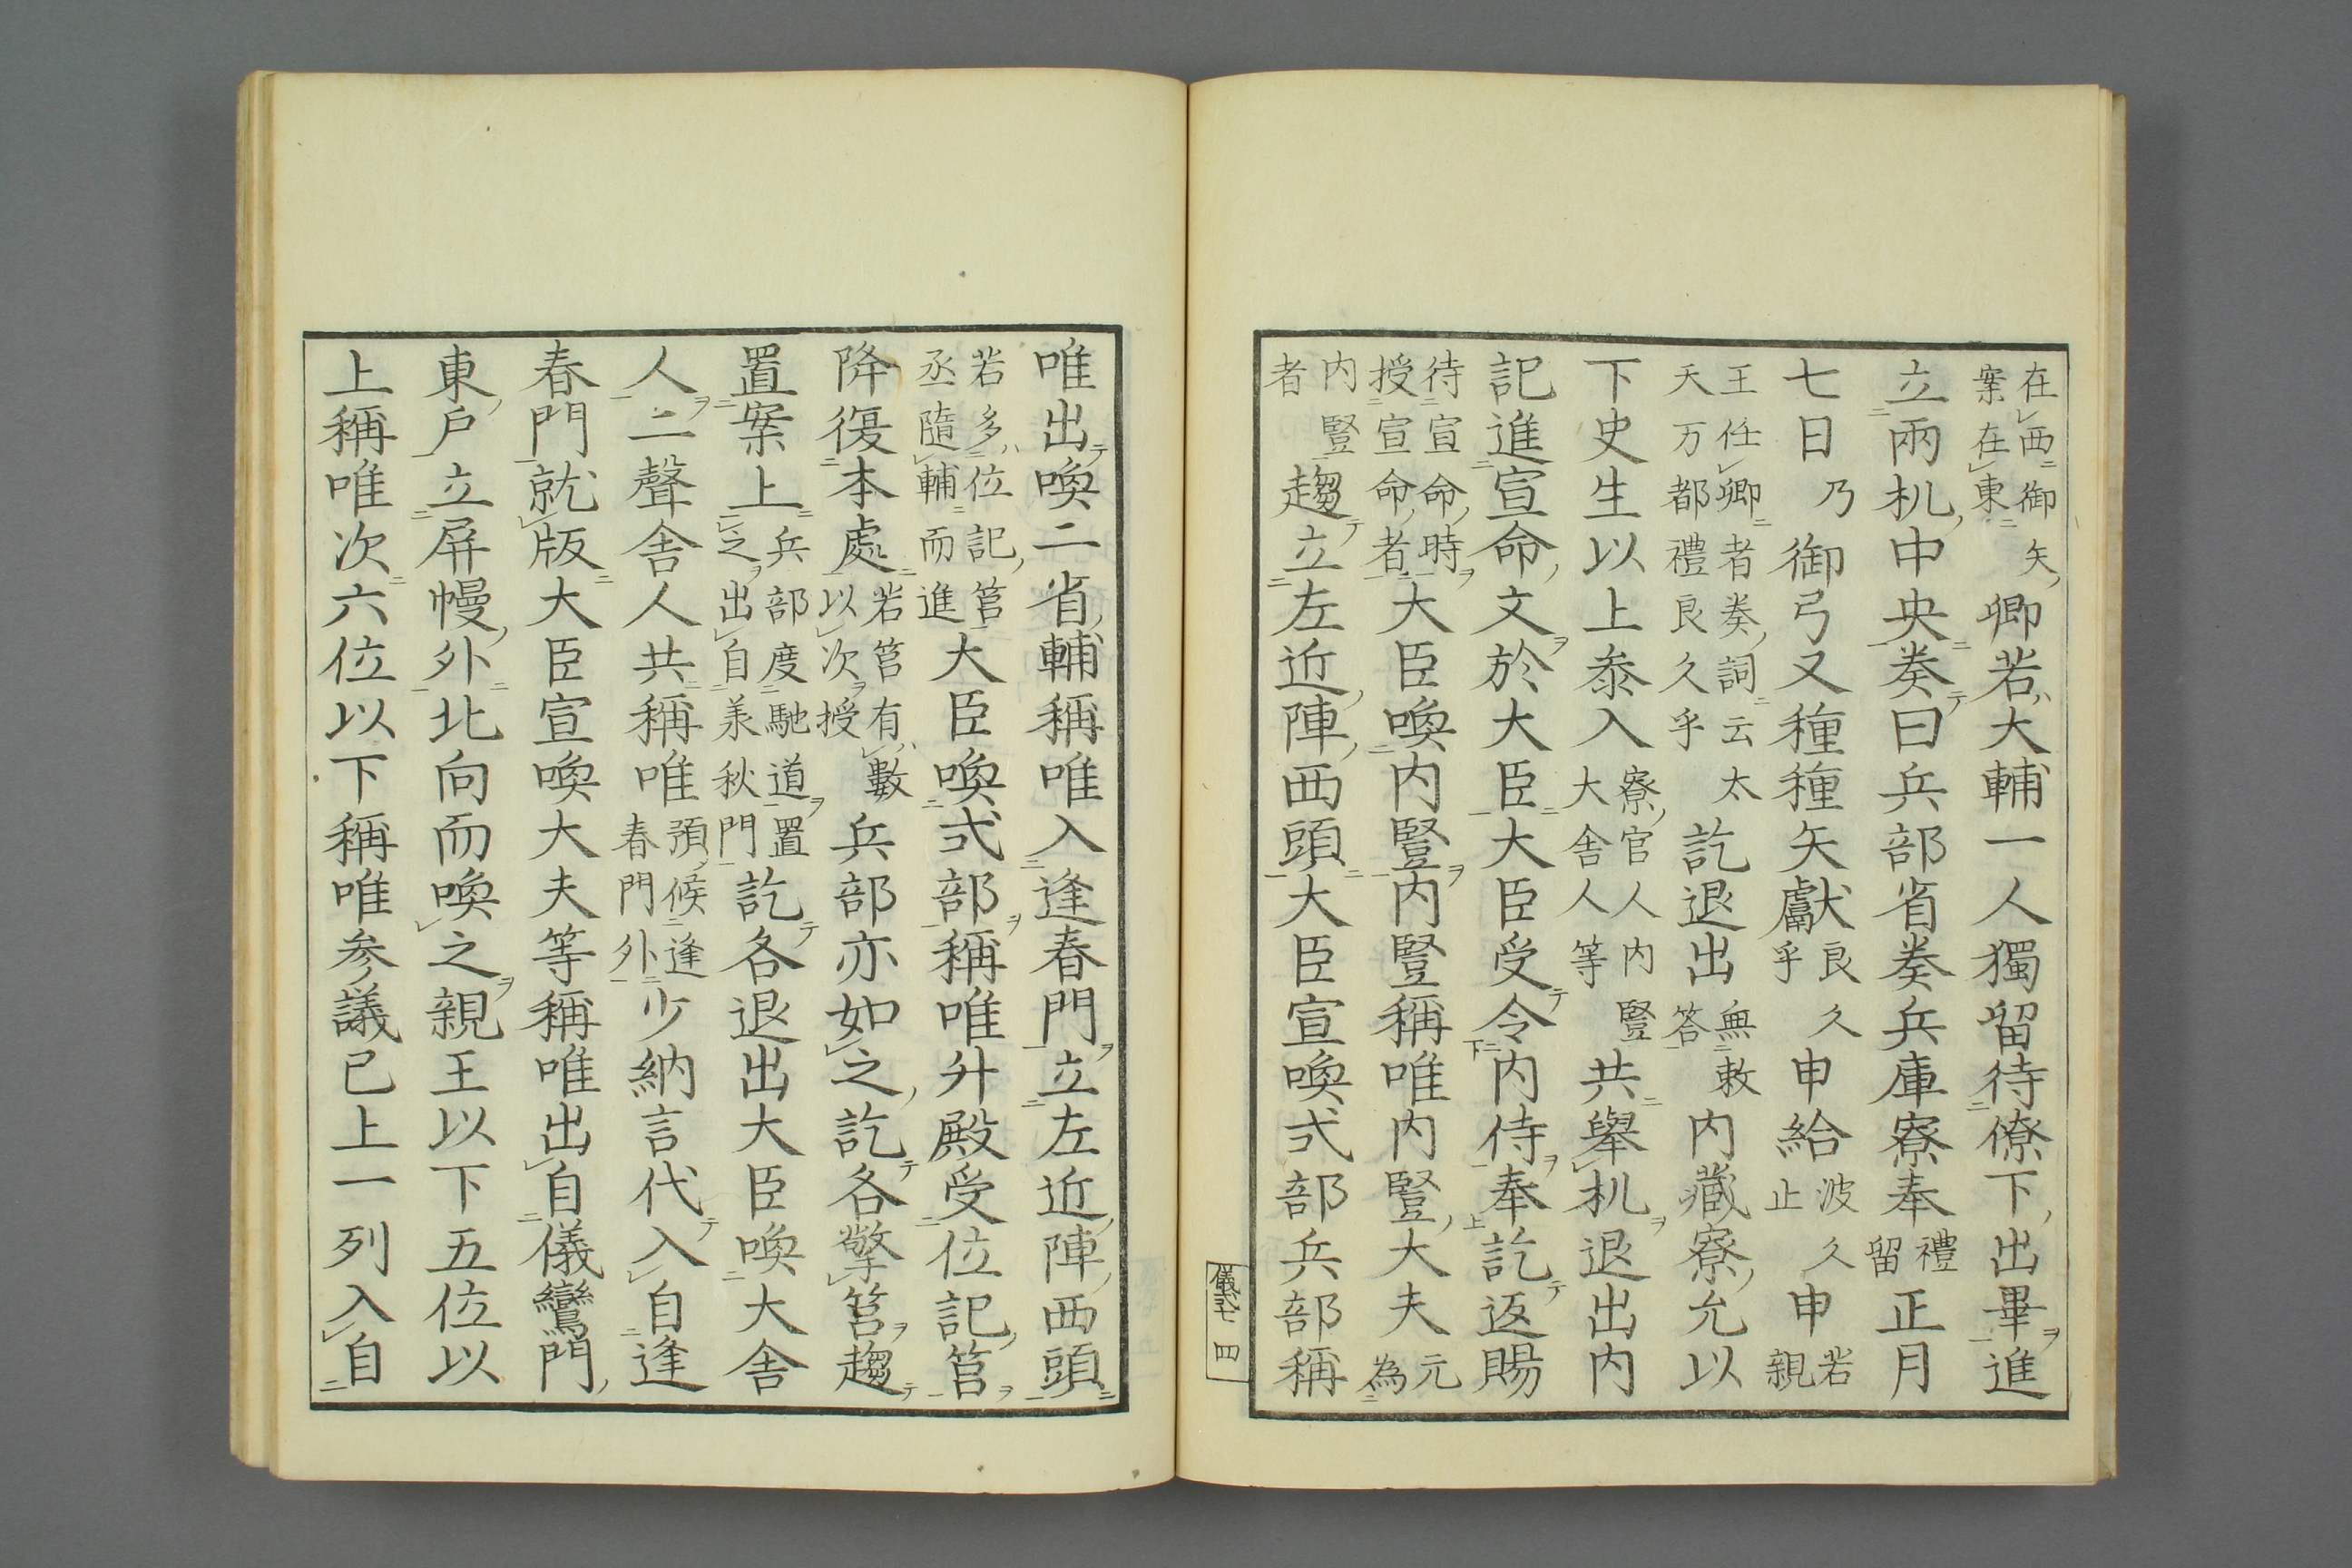 在西御矢案在東卿若大輔一人獨留待僚下出畢進
立兩机中央奏曰兵部省奏兵庫寮奉禮留正月
七日乃御弓又種種矢獻良久乎申給波久止申若親
王任卿者奏詞云太天万都禮良久乎訖退出無敕答内藏寮允以
下史生以上叅入寮官人内豎大舍人等共舉机退出内
記進宣命文於大臣大臣受令内侍奉訖返賜
待宣命時授宣命者大臣喚内豎内豎稱唯内豎大夫元為
内豎者趨立左近陣西頭大臣宣喚式部兵部稱
儀式七 四
唯出喚二省輔稱唯入逢春門立左近陣西頭
若多位記筥丞隨輔而進大臣喚式部稱唯升殿受位記筥
降復本處若筥有數以次授兵部亦如之訖各擎筥趨
置案上兵部度馳道置之出自羕秋門訖各退出大臣喚大舍
人二聲舍人共稱唯預候逢春門外少納言代入自逢
春門就版大臣宣喚大夫等稱唯出自儀鸞門
東戶立屏幔外北向而喚之親王以下五位以
上稱唯次六位以下稱唯参議已上一列入自